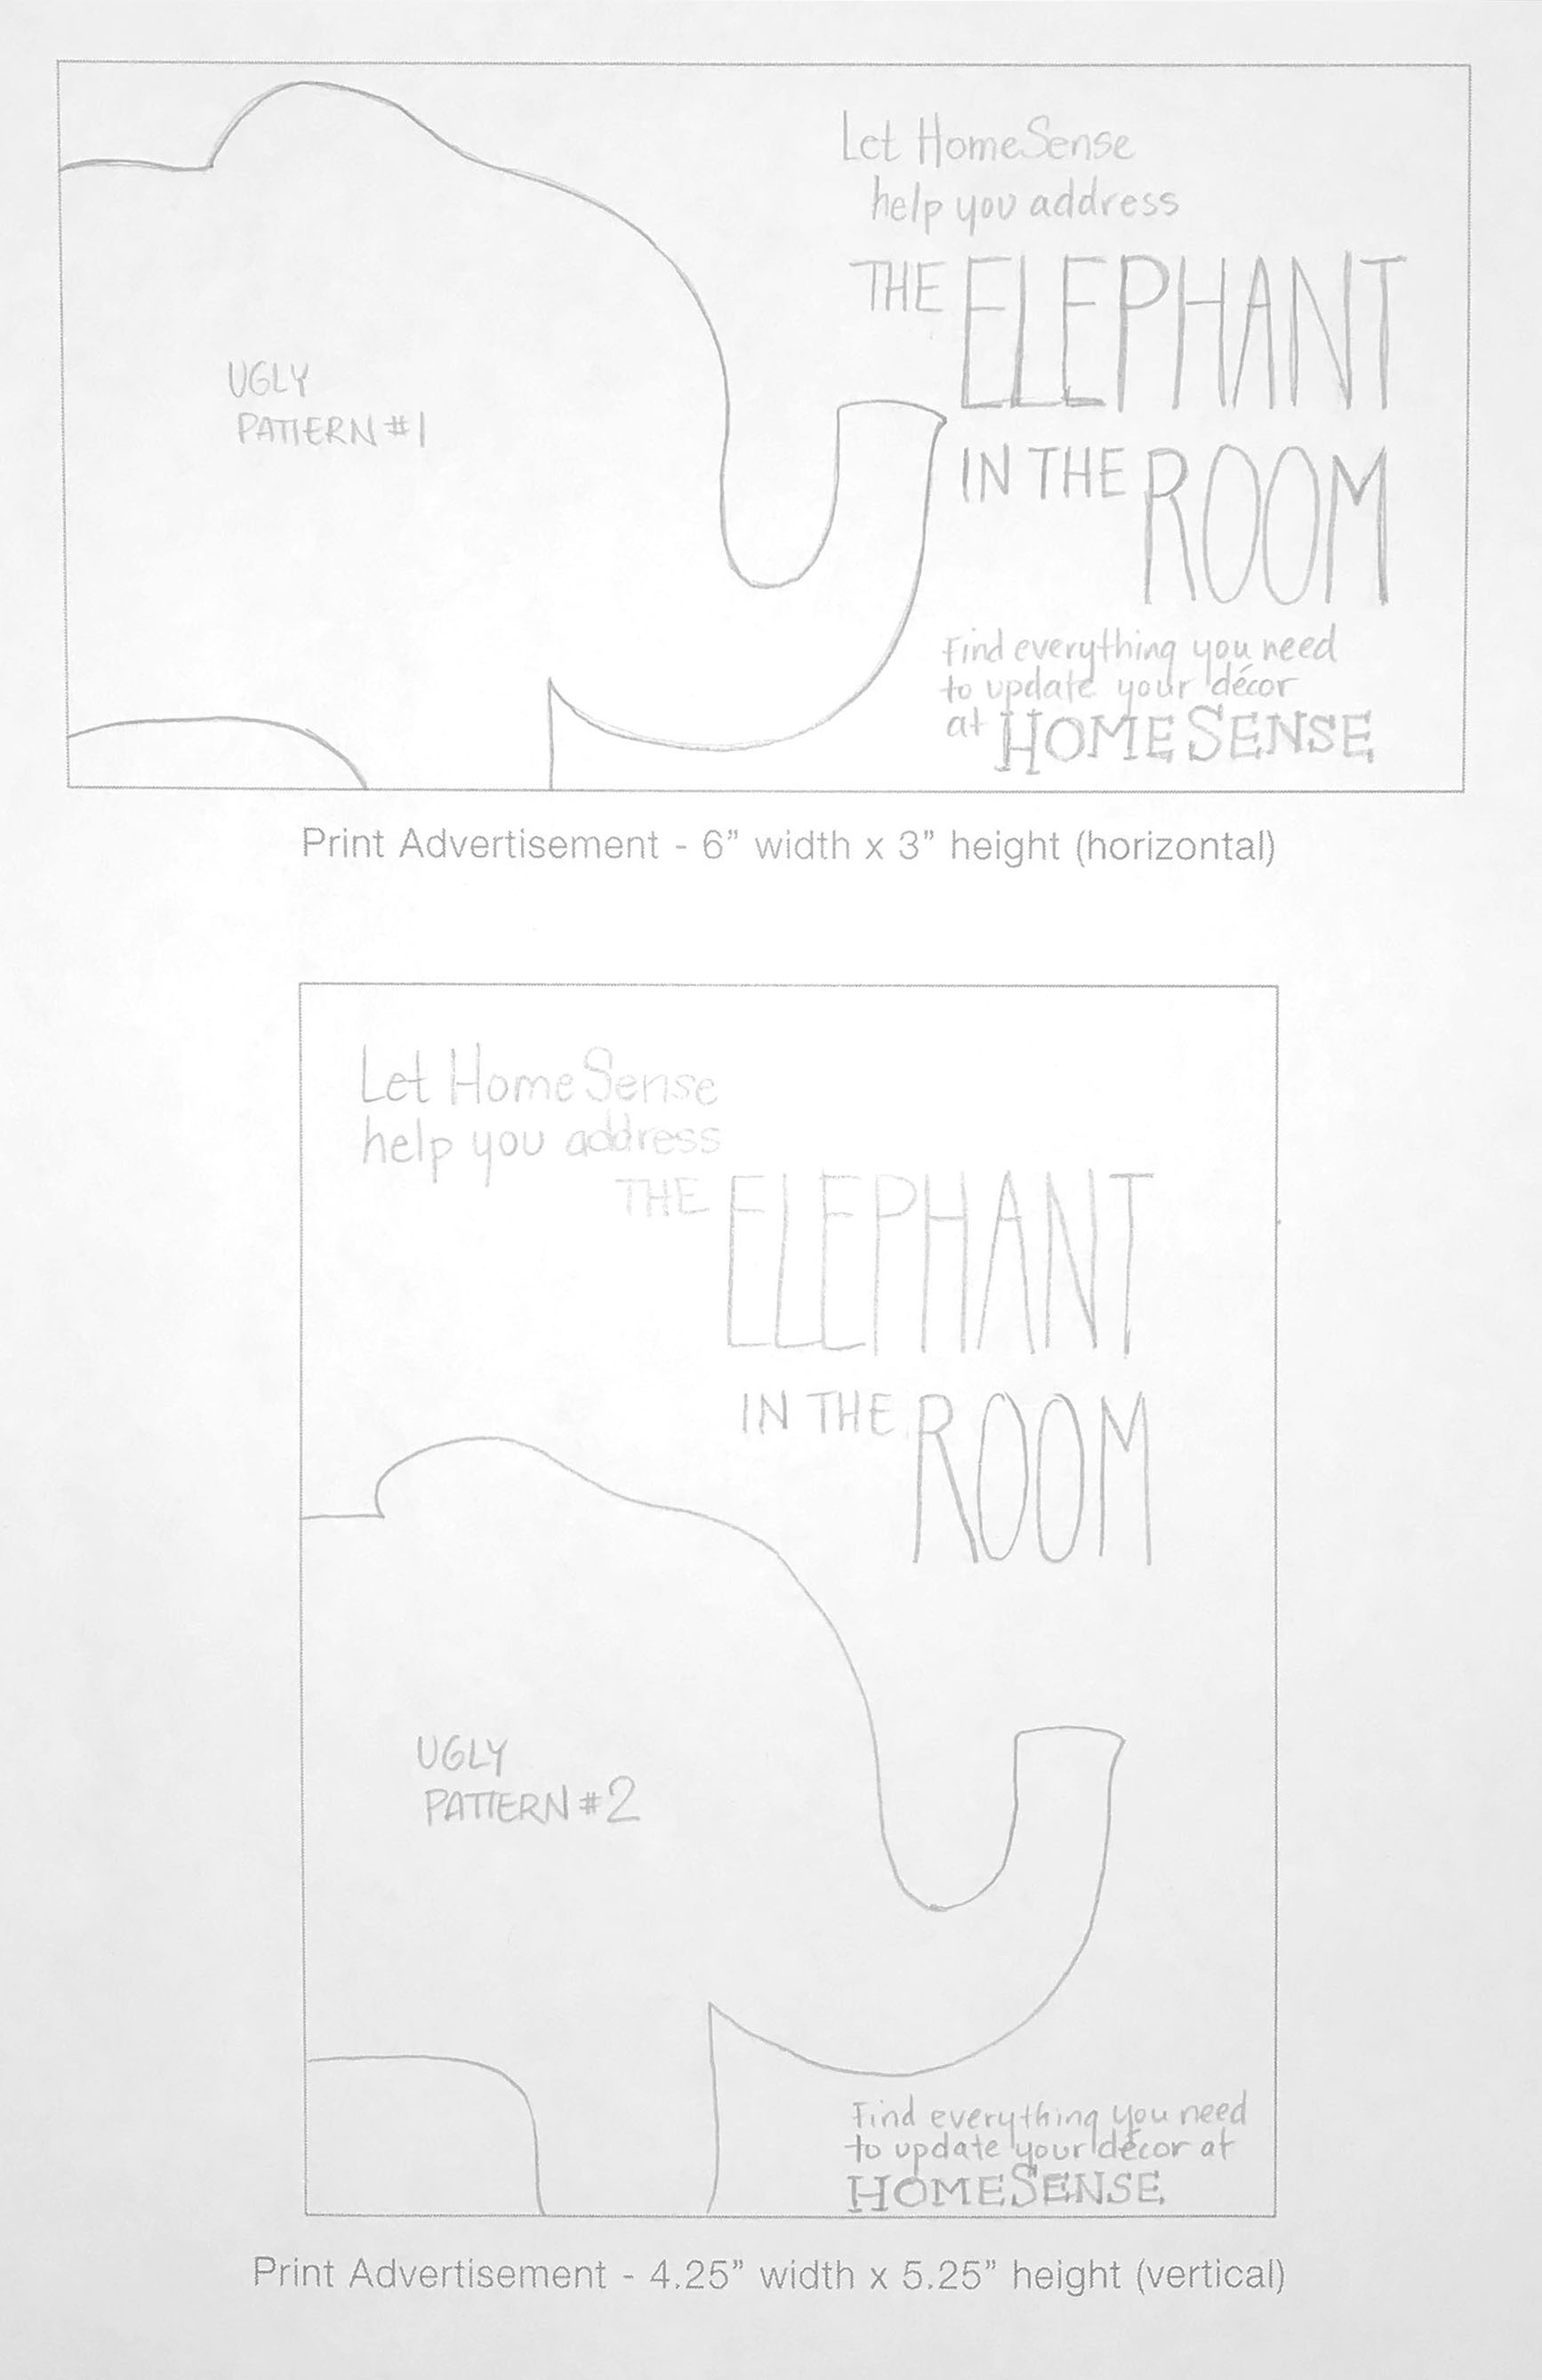 Let HomeSense
help you address
THE ELEPHANT
IN THE ROOM
UGLY
PATTERN #1
Find everything you need
to update your décor
at HOMESENSE
Print Advertisement - 6” width x 3” height (horizontal)
Let HomeSense
help you address
THE ELEPHANT
IN THE ROOM
UGLY
PATTERN #2
Find everything you need
to update your décor at
HOMESENSE
Print Advertisement - 4.25” width x 5.25” height (vertical)